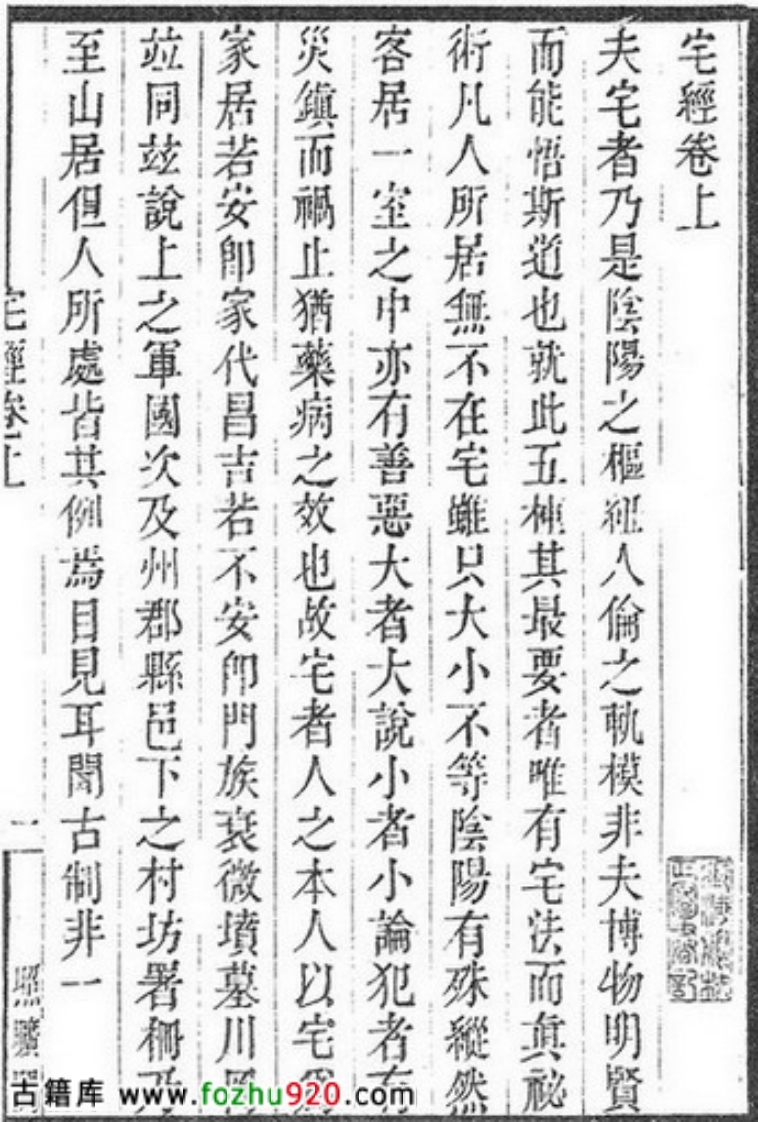 宅經卷上
夫宅者乃是陰陽之樞紐人倫之軌模非夫博物明賢
而能悟斯道也就此五種其最要者唯有宅法而眞祕
術凡人所居無不在宅雖只大小不等陰陽有殊縱然
客居一室之中亦有善惡大者大說小者小論犯者有
災鎮而禍止猶藥病之效也故宅者人之本人以宅爲
家居若安卽家代昌吉若不安卽門族衰微墳墓川
竝同玆說上之軍國次及州郡縣邑下之村坊署柵乃
至山居但人所處皆其例焉目見耳聞古制非一
宅經卷上
一
照曠
古籍库 www.fozhu920.com